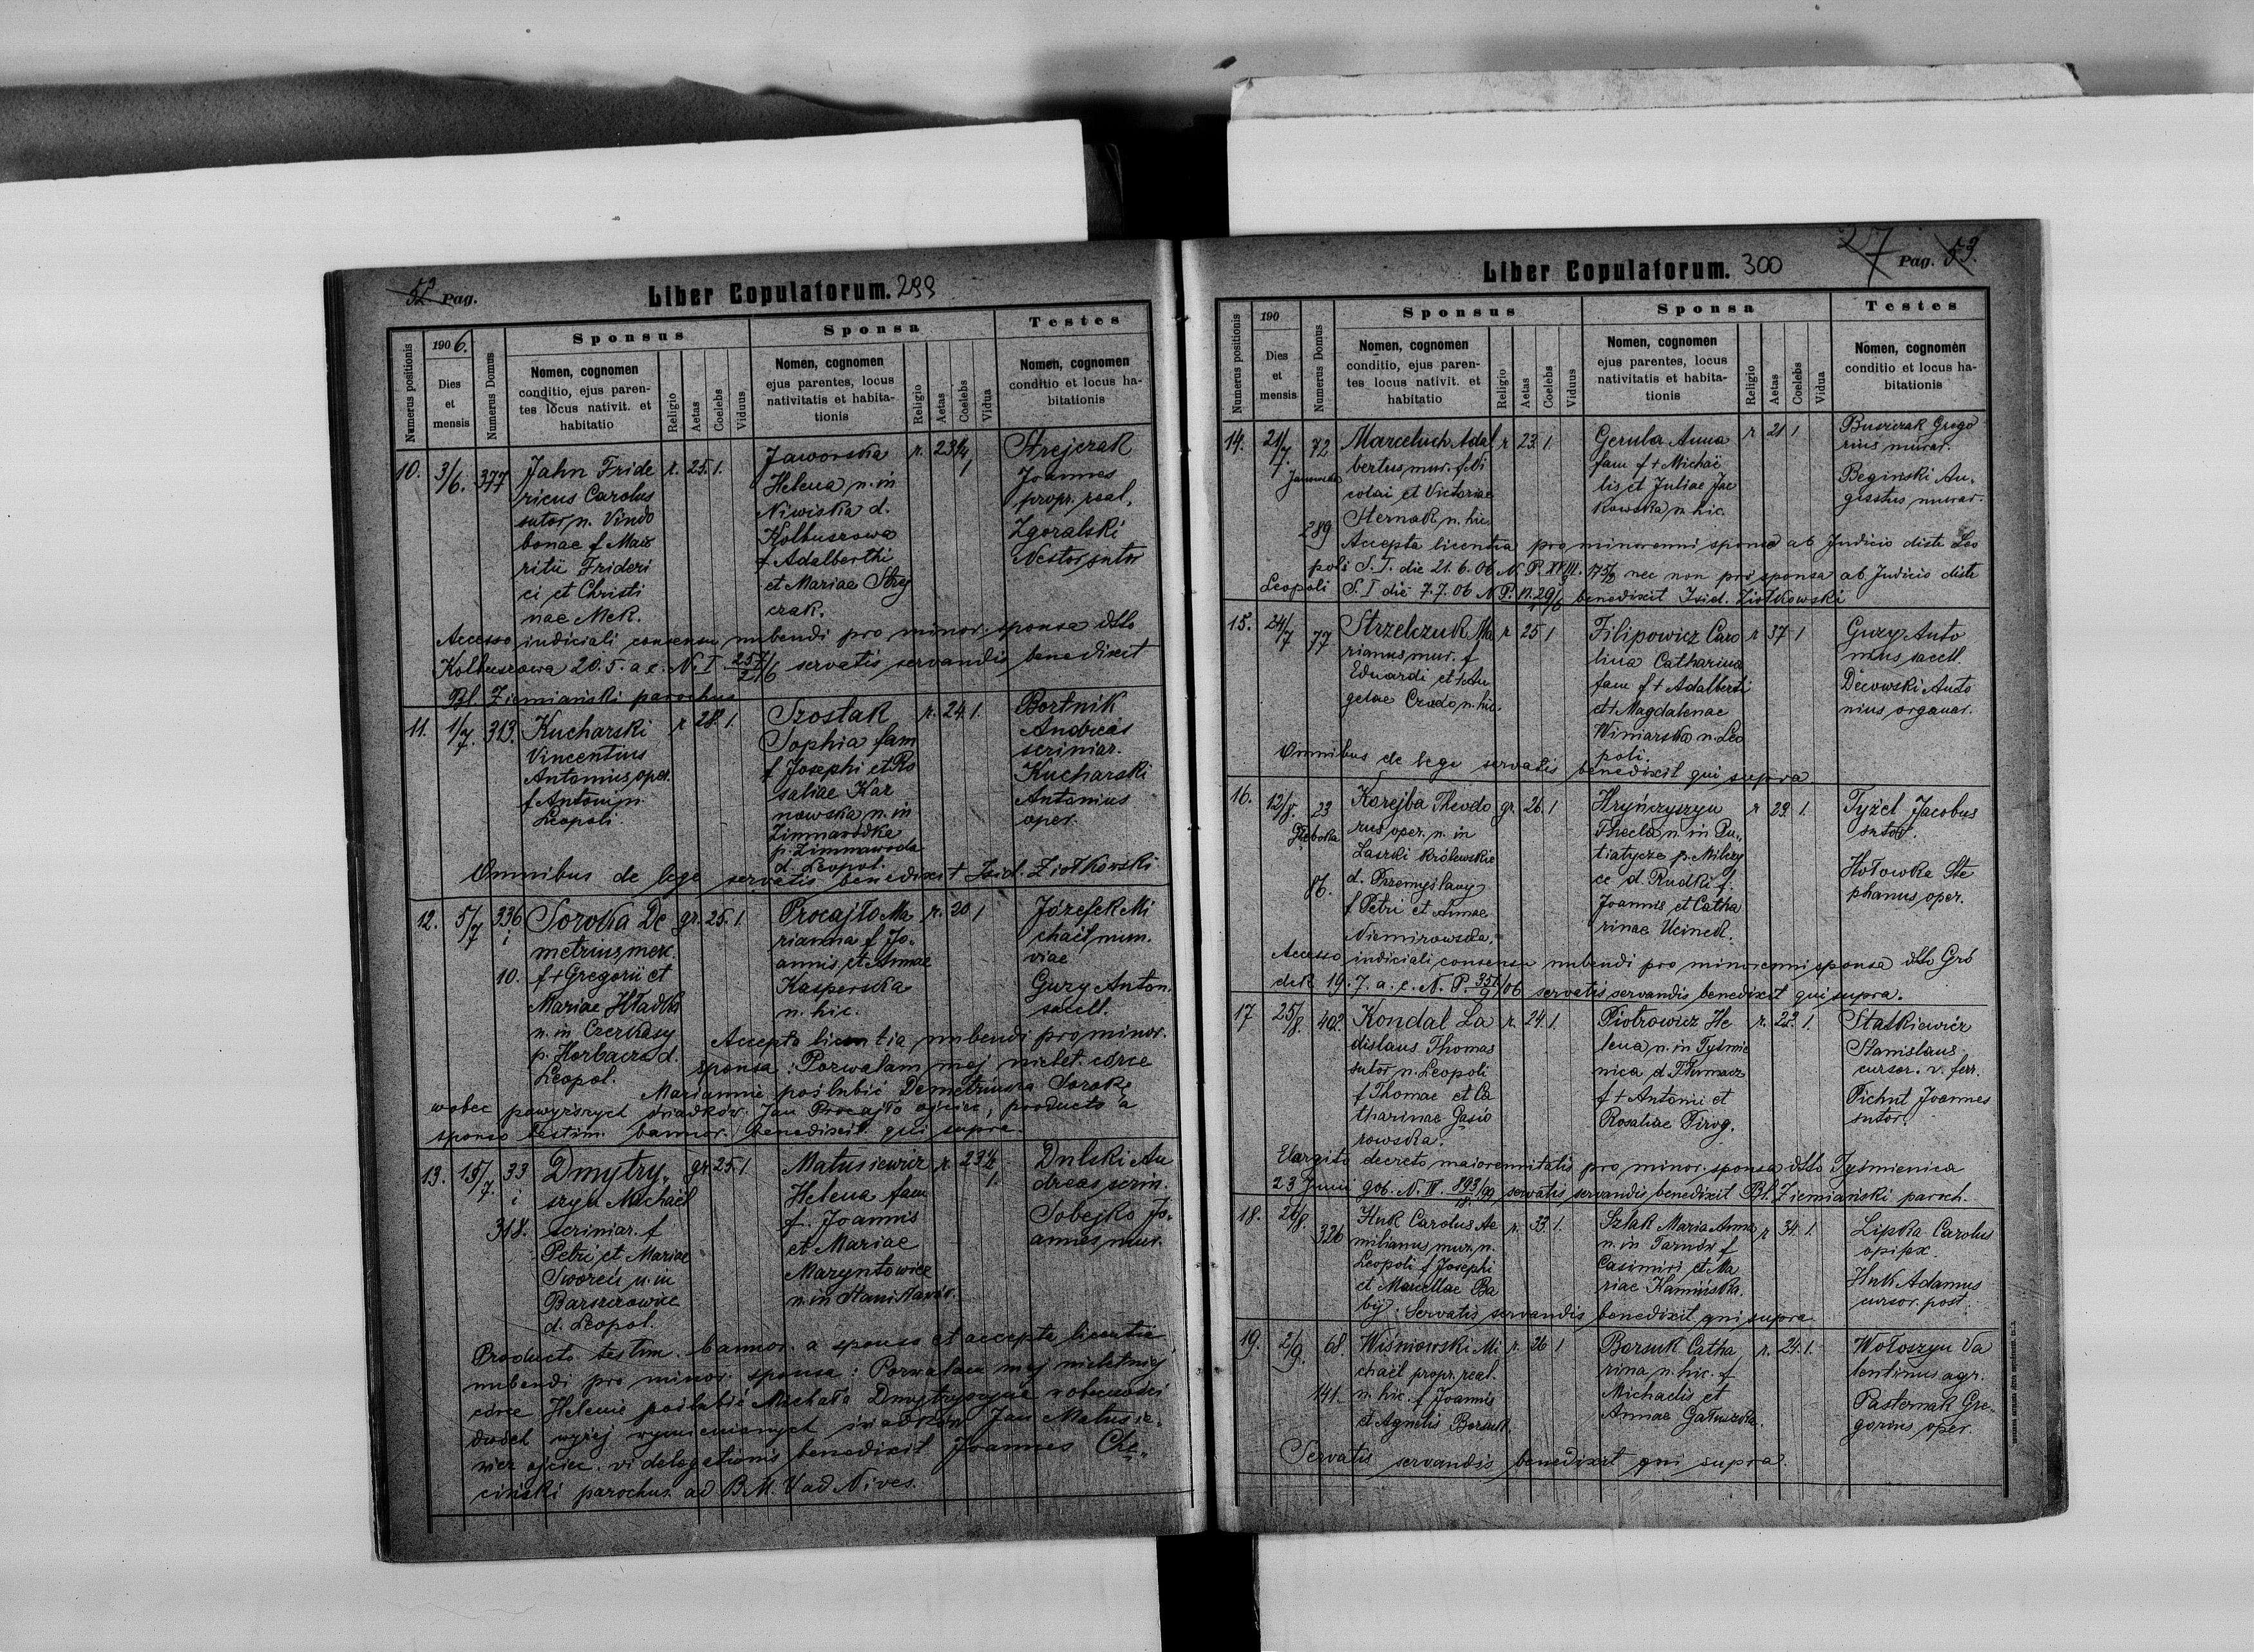 52 Pag.
Liber Copulatorum. 299
Numerus positionis
1906.
Dies
et
mensis
Numerus Domus
Sponsus
Nomen, cognomen
conditio, ejus paren-
tes locus nativit. et
habitatio
Religio
Aetas
Coelebs
Viduus
Sponsa
Nomen, cognomen
ejus parentes, locus
nativitatis et habita-
tionis
Religio
Aetas
Coelebs
Vidua
Testes
Nomen, cognomen
conditio et locus ha-
bitationis
10. 3/6. 377
Jahn Fride
ricus Carolus
sutor, n. Vindo
bonae f Mau
ritii Frideri
ci et Christi
nae Mek.
r. 25. 1.
Jaworska
Helena n. in
Niwiska d.
Kolbuszowa
f Adalberthi
et Mariae Strej
czak.
r. 23 1/4 1
Strejczak
Joannes
propr. real,
Zgoralski
Nestor, sutor
Accesso iudiciali consensu nubendi pro minor. sponsa dtto
Kolbuszowa 20. 5. a. c. N. I servatis servandis benedixit
Bl. Ziemiański parochus
11. 1/7. 313.
Kucharski
Vincentius
Antonius, oper.
f Antoni, n.
Leopoli.
r 28. 1.
Szostak
Sophia fam
f Josephi et Ro
saliae Kar
nowska n. in
Zimnawódka
p. Zimnawoda
d. Leopol.
r. 24. 1.
Bortnik
Andreas
scriniar.
Kucharski
Antonius
oper.
Omnibus de lege servatis benedixit Isid. Ziołkowski
12. 5/7 336
i
10.
Soroka De
metrius, mer.
f + Gregorii et
Mariae Hładka
n. in Czerkasy
p. Horbacze d.
Leopol.
gr. 25. 1.
Procajło Ma
rianna f Jo-
annis, et Annae
Kasperska
n. hic.
r. 20 1
Józefek Mi
chaël, mum.
viae
Guzy Anton.
sacell.
Accepta licentia nubendi pro minor.
sponsa: Pozwalam mej nielet. córce
Mariannie poślubić Demetriusza Sorokę
wobec powyższych świadków. Jan Procajło ojciec, producto a
sponso testim. bannor. benedixit qui supra.
13. 15/7. 33
i
318.
Dmytry-
szyn Michaël
scriniar. f
Petri et Mariae
Sworeń n. in
Barszczowice
d. Leopol.
gr. 25. 1
Matusiewicz
Helena fam
f. Joannis
et Mariae
Maryntowicz
n. in Stanisławów.
r. 23 1/2 1.
Dulski An
dreas serm.
Sobejko Jo-
annes, mur.
Producto testim. bannor. a sponso et accepta licentia
nubendi pro minor. sponsa: Pozwalam mej nieletniej
córce Helenie poślubić Michała Dmytryszyna w obecności
dwóch wyżej wymienionych świadków Jan Matusie-
wicz ojciec. vi delegationis benedixit Joannes Chę-
ciński parochus ad B. M. V ad Nives.
27 Pag. 53.
Liber Copulatorum. 300
Numerus positionis
190
Dies
et
mensis
Numerus Domus
Sponsus
Nomen, cognomen
conditio, ejus paren-
tes locus nativit. et
habitatio
Religio
Aetas
Coelebs
Viduus
Sponsa
Nomen, cognomen
ejus parentes, locus
nativitatis et habita-
tionis
Religio
Aetas
Coelebs
Vidua
Testes
Nomen, cognomen
conditio et locus ha-
bitationis
14. 21/7 72
289
Marceluch Adal
bertus, mur. f Ni
colai et Victoriae
Hernak, n. hic.
r 23. 1.
Gerula Anna
fam f + Michaë
lis et Juliae Jac
kowska n. hic.
r 21 1
Buszczak Grego
rius murar.
Beginski Au-
gustus, murar.
Accepta licentia pro minorenni sponso ab Judicio distr. Leo
poli S. I. die 21. 6. 06 N. P. XVIII. nec non pro sponsa ab Judicio distr.
Leopoli S. I die 7. 7. 06 N P. benedixit Isid. Ziołkowski
15. 24/7 77
Strzelczuk Ma
rianus, mur. f
Eduardi et + An
gelae Czado, n. hic.
r 25 1
Filipowicz Caro
lina Catharina
fam f + Adalberti
et + Magdalenae
Winiarska n. Leo
poli.
r 37 1
Guzy Anto
nius sacell.
Decowski Anto
nius, organar.
Omnibus de lege servatis benedixit qui supra
16. 12/8. 23
Głęboka
86.
Korejba Theodo
rus oper. n. in
Laszki królewskie
d. Przemyślany
f Petri et Annae
Niemirowska.
gr. 26. 1
Hryńczyszyn
Thecla, n. in Pu-
tiatycze p. Milczy
ce d. Rudki f.
Joannis, et Catha
rinae Ucinek.
r 23. 1.
Tyżel Jacobus
sutor.
Hołowka Ste
phanus, oper.
Accesso iudiciali consensu nubendi pro minorenni sponsa dtto Gró
dek 19. 7. a. c. N. P. servatis servandis benedixit qui supra.
17 25/8. 402.
Kondal La
dislaus Thomas
sutor n. Leopoli
f Thomae et Ca
tharinae Gąsio
rowska.
r. 24. 1.
Piotrowicz He
lena n. in Tyśmie
nica d Tłumacz
f + Antoni et
Rosaliae Pirog.
r. 22. 1.
Statkiewicz
Stanislaus
cursor. v. ferr.
Pichut Joannes
sutor.
Elargito decreto maiorennitatis pro minor. sponsa dtto Tyśmienica
23 Junii 906. N. IV. 893/99 servatis servandis benedixit Bl. Ziemiański paroch.
18. 326
Huk Carolus Ae
milianus, mur. n.
Leopoli f Josephi
et Marcellae Ba
bij.
r. 33. 1.
Szlak Maria Anna
n. in Tarnów f
Casimiri et Ma
riae Kamińska.
r 34. 1.
Lipka Carolus
opifex.
Huk Adamus
cursor. post.
Servatis servandis benedixit qui supra
19. 2/9. 68.
141.
Wiśniowski Mi
chaël propr. real.
n. hic. f Joannis
et Agnetis Borsuk.
r. 26 1
Borsuk Catha
rina, n. hic. f
Michaelis et
Annae Gałuszka.
r. 24. 1.
Wołoszyn Va
lentinus agr.
Pasternak Gre-
gorius, oper.
Servatis servandis benedixit qui supra.